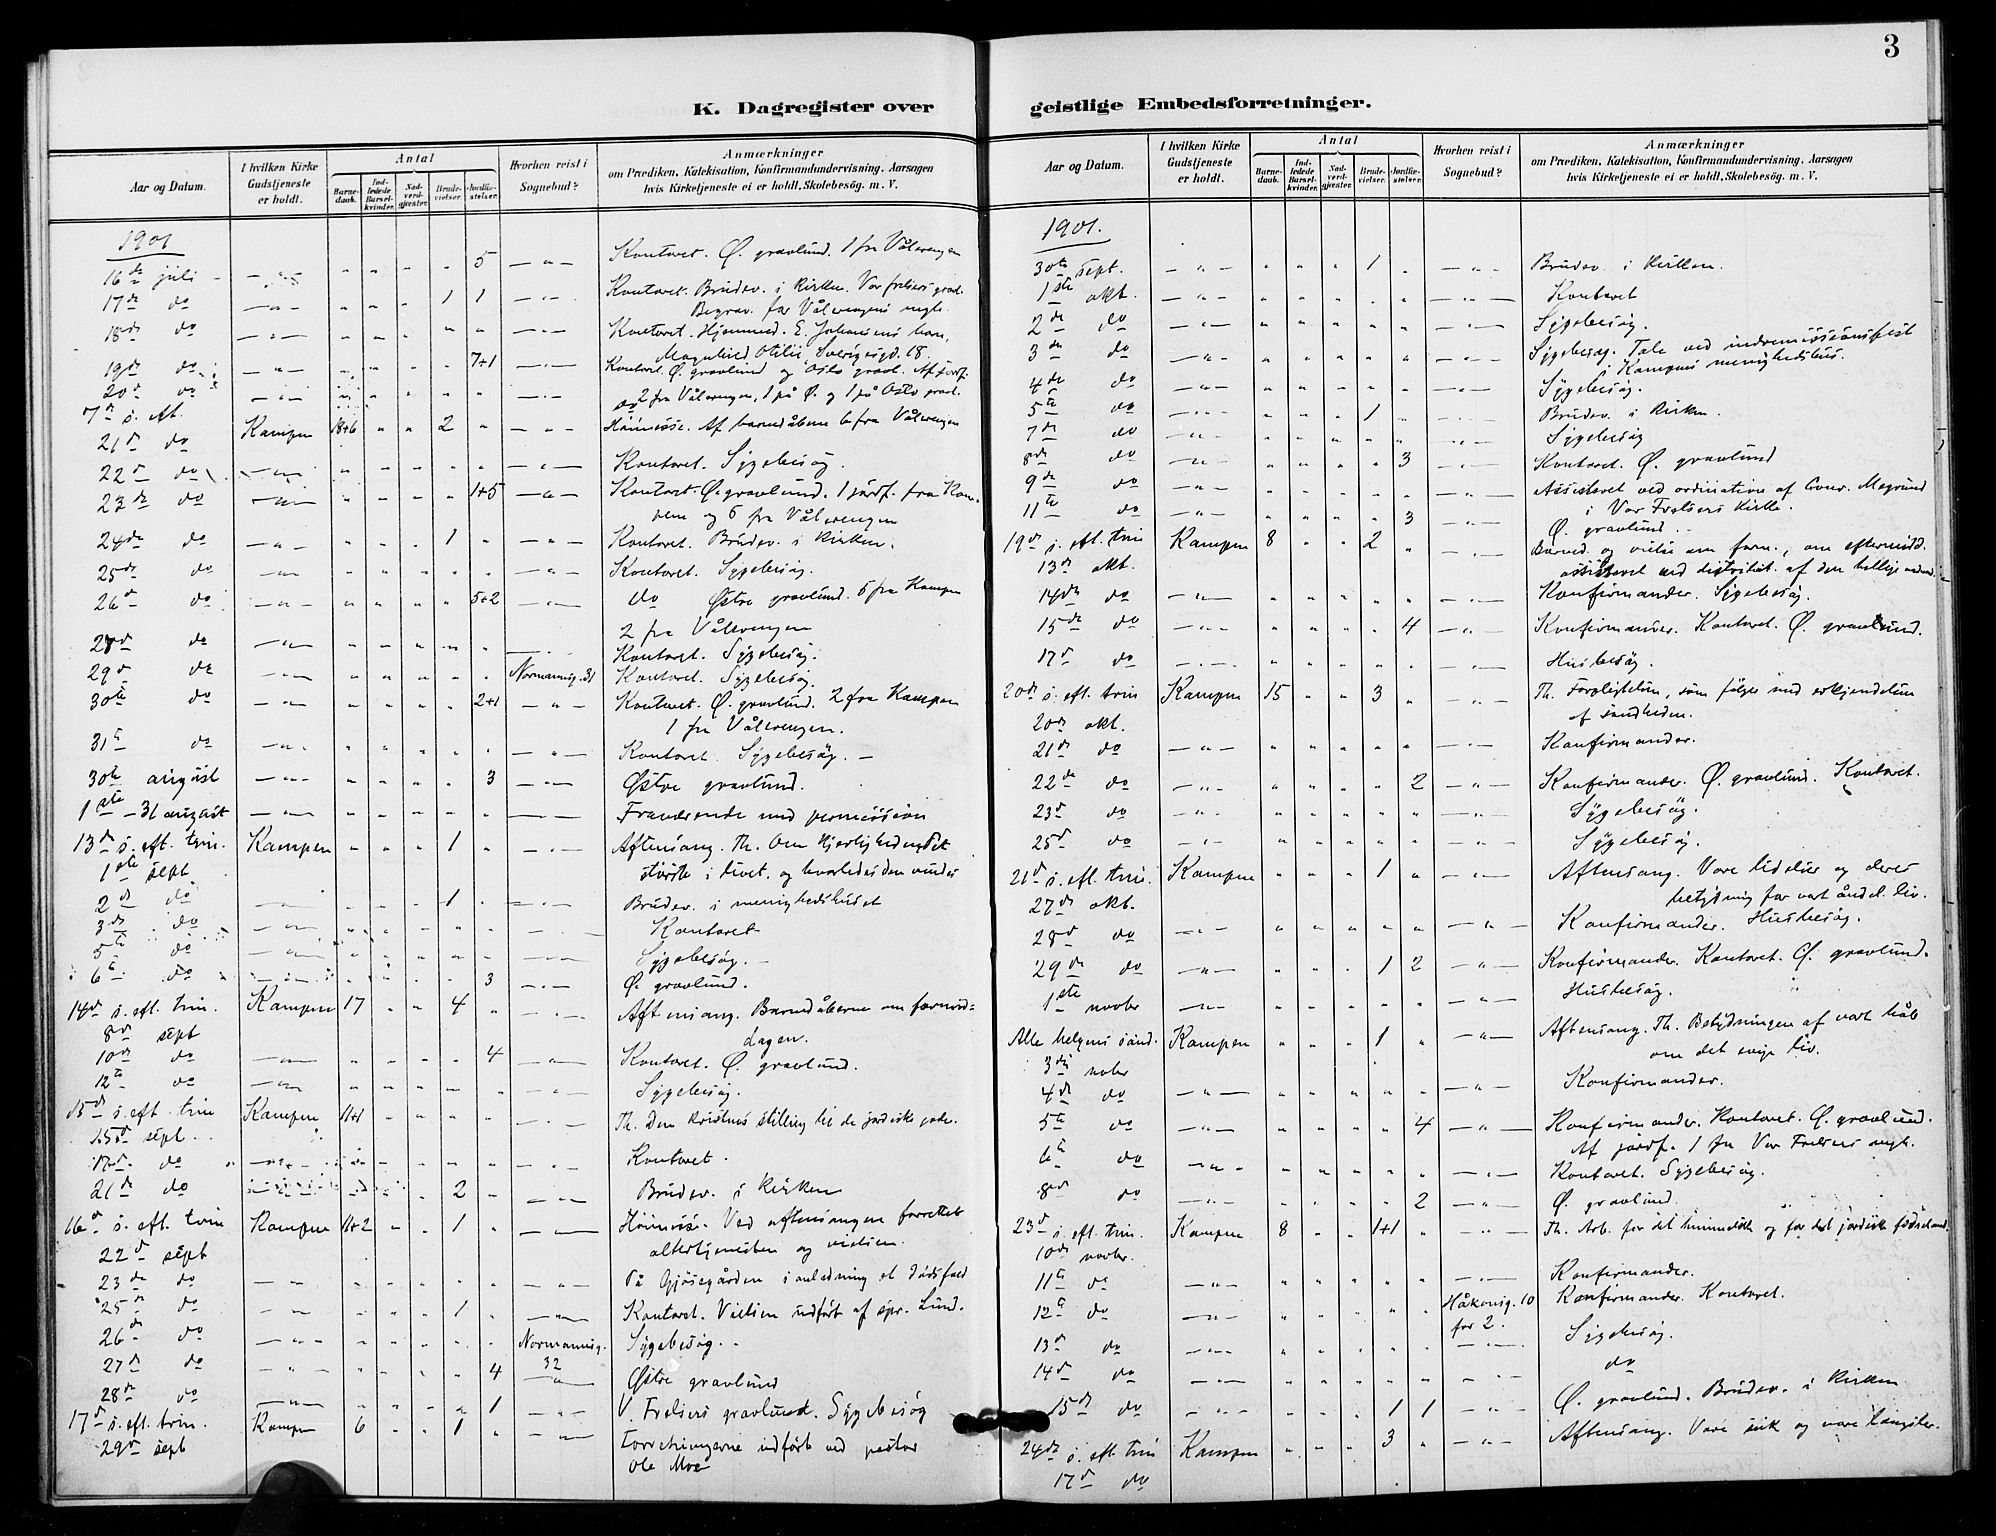 3
K. Dagregister over geistlige Embedsforretninger.
Aar og Datum.
I hvilken Kirke Gudstjeneste er holdt.
Antal
Barnedaab.
Indledede Barselkvinder.
Nadverdgjester.
Brudevielser.
Jordfæstelser.
Hvorhen reist i Sognebud?
Anmærkninger
om Prædiken, Katekisation, Konfirmandundervisning, Aarsagen
hvis Kirketjeneste ei er holdt, Skolebesög. m. V.
1901
16de juli 5 Kontoret. Ø. gravlund. 1 fra Vålerengen
17de do 1 1 Kontoret. Brudev. i Kirken. Vor frelsers grav.
Begrav. for Vålerengens
18de do Kontoret. Hjemmed. E. Johansens barn,
Otilie, Sverigesgd. 18.
19de do 7+1 Kontoret. Ø. gravlund og Oslo gravl. Af jordf.
20de do 2 fra Vålerengen, 1 på Ø. og 1 på Oslo grav.
7de s. eft.
21de do Kampen 18+6 2 Høimesse. Af barnedåbene 6 fra Vålerengen
22de do Kontoret. Sygebesøg.
23de do 1+5 Kontoret. Ø. gravlund. 1 jordf. fra Kam-
pen og 5 fra Vålerengen
24de do 1 Kontoret. Brudev. i Kirken.
25de do Kontoret. Sygebesøg.
26de do 5+2 do Østre gravlund. 5 fra Kampen
2 fra Vålerengen
do Kontoret. Sygebesøg.
29de do Normannsg. 31 Kontoret. Sygebesøg.
30te do 2+1 Kontoret. Ø. gravlund. 2 fra Kampen
1 fra Vålerengen.
31te do Kontoret. Sygebesøg.
30te august 3 Østre gravlund.
1ste - 31 august Fraværende med permission
13de s. eft. trin. Kampen 1 Aftensang. Th. Om Kjerligheden, det
1ste sept største i livet, og hvorledes den vindes
2de do 1 Brudev. i menighedshuset
3de do Kontoret
5te do Sygebesøg.
6te do 3 Ø. gravlund.
14de s. eft. trin. Kampen 17 4 Aftensang. Barnedåbene om formid-
8de sept dagen.
10de do 4 Kontoret. Ø. gravlund.
12te do Sygebesøg.
15de s. eft. trin Kampen 11+1 Th. Den kristnes stilling til de jordiske gode.
15de sept
17de do Kontoret.
21de do 2 Brudev. i Kirken
16de s. eft. trin Kampen 11+2 1 Høimesse. Ved aftensangen forrettet
22de sept altertjenesten og vielsen.
23de do På Gjøsegården i anledning et dødsfald
25de do 1 Kontoret. Vielsen udført af spr. Lund.
26de do Normannsg. 32 Sygebesøg.
27de do 4 Østre gravlund
28de do 1 V. Frelsers gravlund. Sygebesøg
17de s. eft. trin. Kampen 6 1 Forretningerne udført ved pastor
29de sept Ole Moe
Aar og Datum.
I hvilken Kirke Gudstjeneste er holdt.
Antal
Barnedaab.
Indledede Barselkvinder.
Nadverdgjester.
Brudevielser.
Jordfæstelser.
Hvorhen reist i Sognebud?
Anmærkninger
om Prædiken, Katekisation, Konfirmandundervisning, Aarsagen
hvis Kirketjeneste ei er holdt, Skolebesög. m. V.
1901.
30te sept. 1 Brudev. i Kirken.
1ste okt. Kontoret
2de do Sygebesøg.
3de do Sygebesøg. Tale ved indremissionsfest
i Kampens menighedshus.
4de do Sygebesøg.
5te do 1 Brudev. i Kirken.
7de do Sygebesøg
8de do 3 Kontoret. Ø. gravlund
9de do Assisteret ved ordination af
i Vor Frelsers Kirke.
11te do 3 Ø. gravlund.
19de s. eft. trin Kampen 8 2 Barned. og vielse om form., om eftermidd.
13de okt. assisteret ved af den hellige
14de do Konfirmander. Sygebesøg.
15de do 4 Konfirmander. Kontoret. Ø. gravlund.
17de do Husbesøg.
20de s. eft. trin Kampen 15 3 Th. Forpligtelsen, som følger med erkjendelsen
20de okt. af sandheden.
21de do Konfirmander.
22de do 2 Konfirmander. Ø. gravlund. Kontoret.
23de do Sygebesøg.
25de do Sygebesøg.
21de s. eft. trin. Kampen 1 Aftensang. Vore lidelser og deres
27de okt. betydning for vort åndel. liv.
28de do Konfirmander. Husbesøg.
29de do 1 2 Konfirmander. Kontoret. Ø. gravlund.
1ste novbr Husbesøg.
Alle helgens sønd. Kampen 1 Aftensang. Th. Betydningen af vort håb
3die novbr om det evige liv.
4de do Konfirmander.
5te do 4 Konfirmander. Kontoret. Ø. gravlund.
Af jordf. 1 fra Vor Frelsers
6te do Kontoret. Sygebesøg.
8de do 2 Ø. gravlund.
23de s. eft. trin. Kampen 8 1+1 Th. Arb. for det himmelske og for det jordiske fødeland.
10de novbr.
11te do Konfirmander.
12te do Håkonsg. 10 Konfirmander. Kontoret.
for 2.
13de do Sygebesøg.
14de do do
15de do 1 1 Ø. gravlund. Brudev. i Kirken
24de s. eft. trin Kampen 3 Aftensang. Vore suk og vore længsler.
17de do